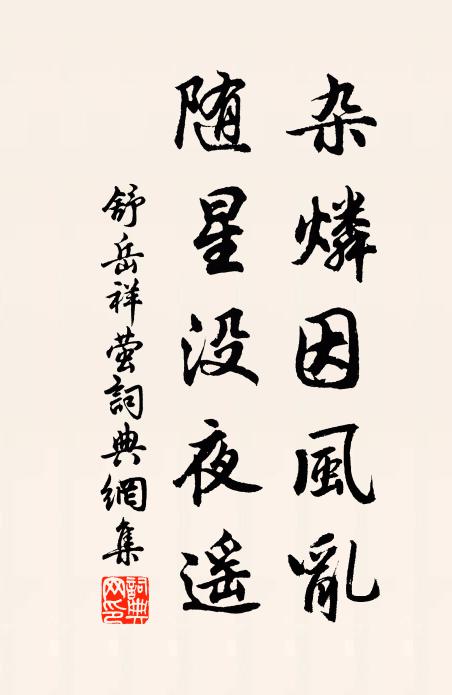 杂燐因風亂
随星没夜遥
舒岳祥萤詞典網集
詞典
网印